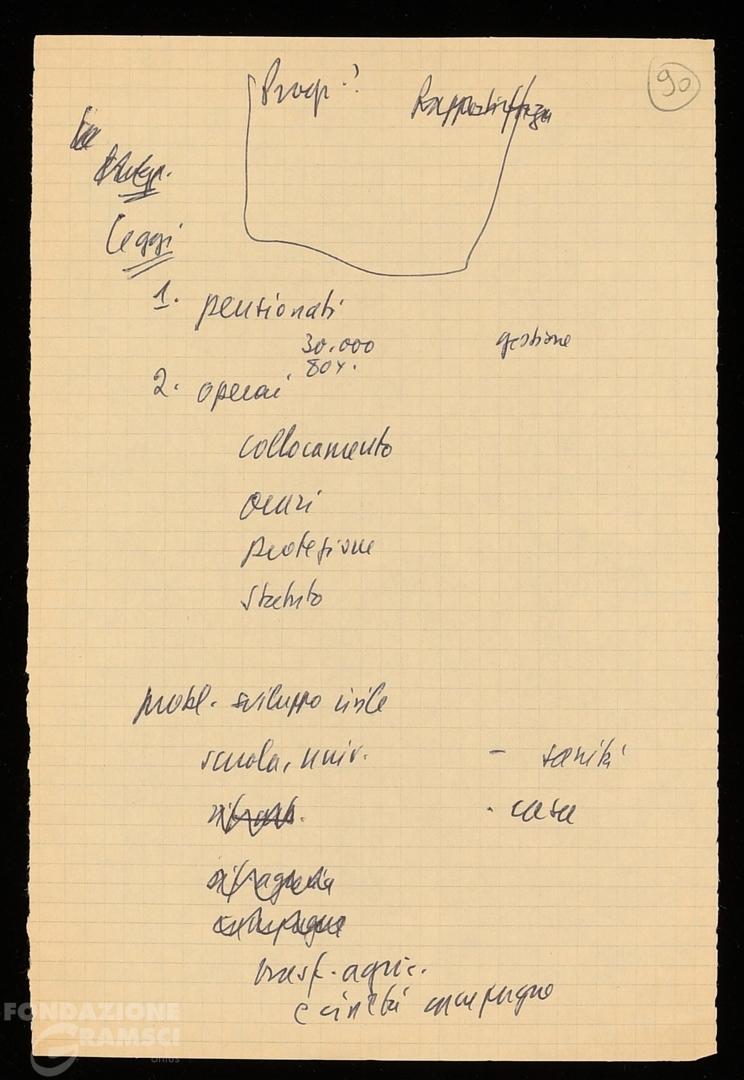 90
Progr.?
Leggi
1. pensionati
30.000 gestione
80%.
2. operai
collocamento
orari
protezione
statuto
probl. sviluppo civile
scuola, univ. - sanità
- casa
trasf. agric.
e civiltà campagne
FONDAZIONE
GRAMSCI
onlus